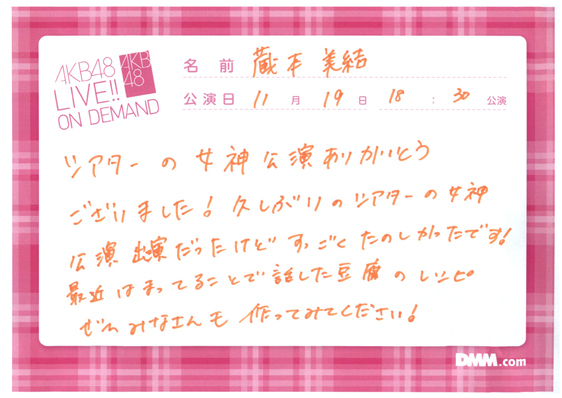 AKB48
LIVE!!
ON DEMAND
AKB
48
名前 蔵本美結
公演日 11月19日 18:30公演
シアターの女神公演ありがとう
ございました！久しぶりのシアターの女神
公演出演だったけどすっごくたのしかったです！
最近はまってることで話した豆腐のレシピ
ぜひみなさんも作ってみてください！
DMM.com